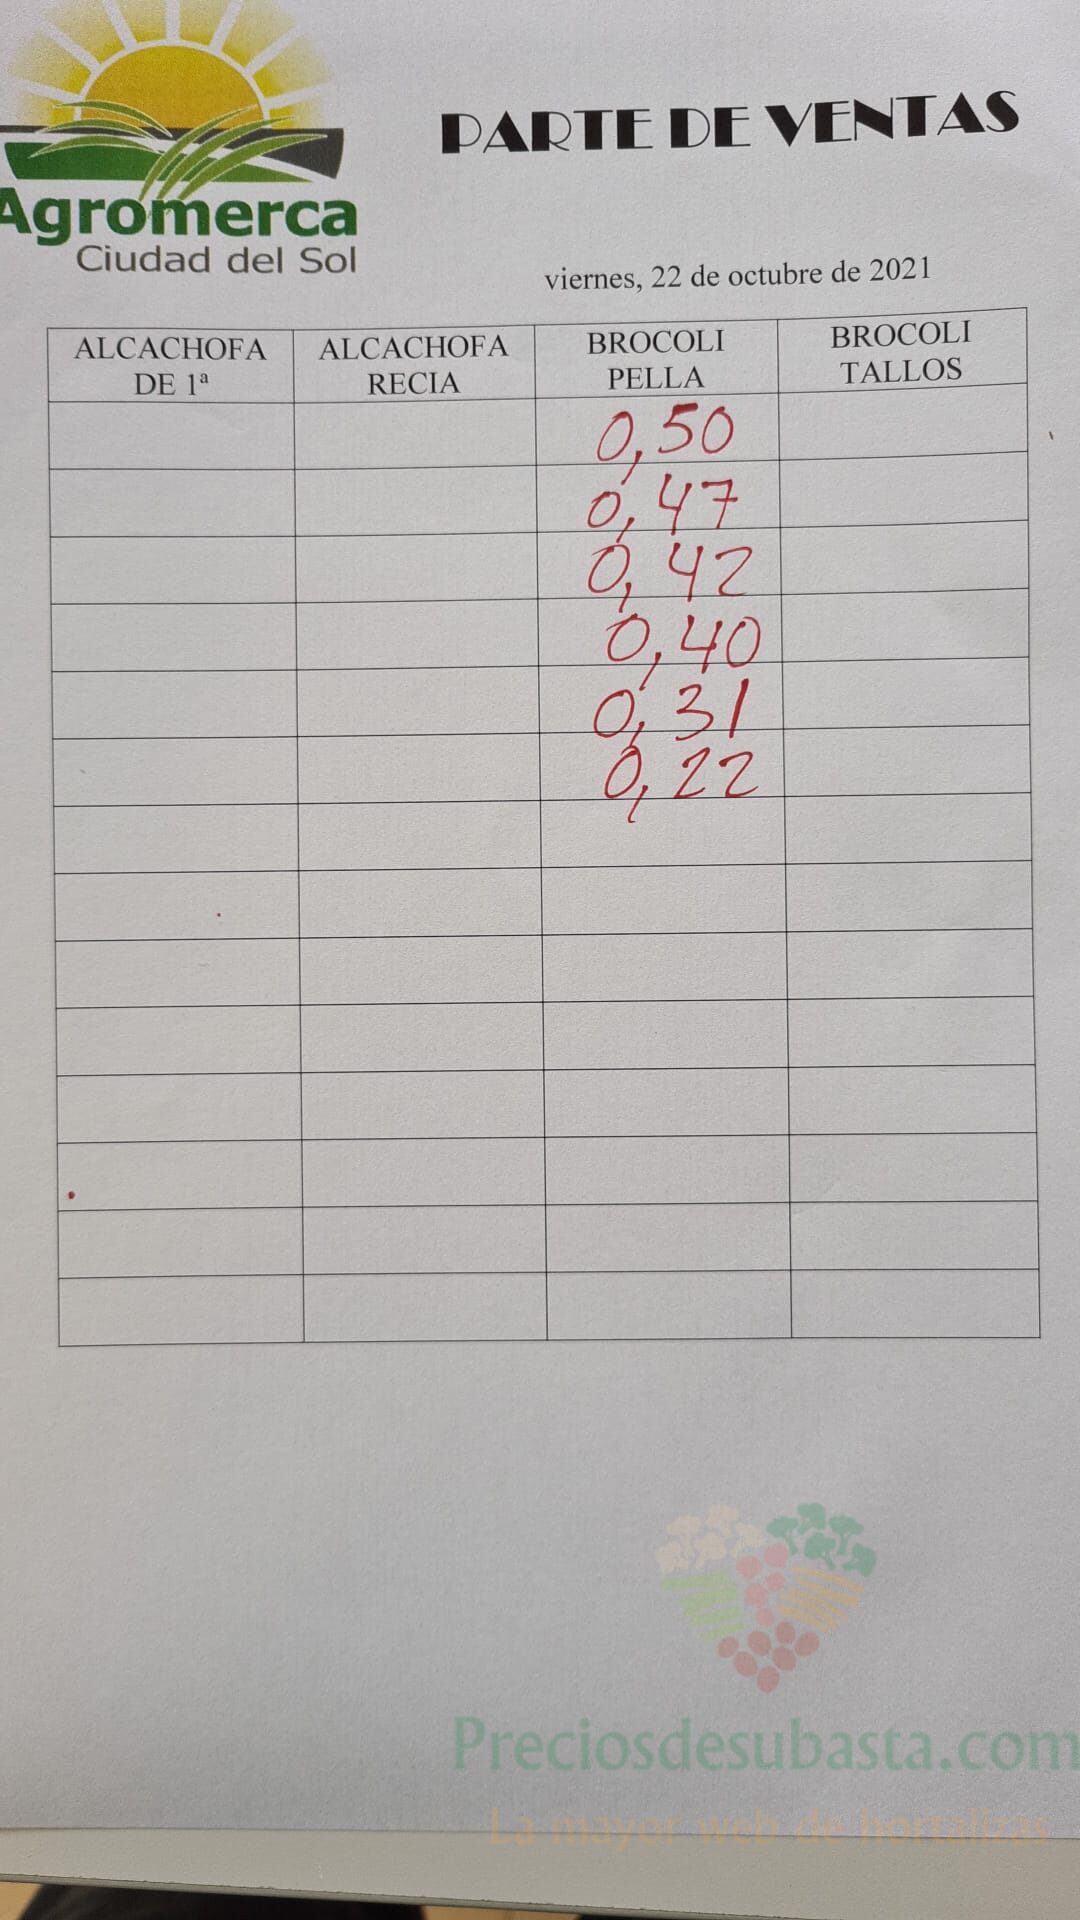 PARTE DE VENTAS
Agromerca
Ciudad del Sol
viernes, 22 de octubre de 2021
ALCACHOFA DE 1ª
ALCACHOFA RECIA
BROCOLI PELLA
BROCOLI TALLOS
0,50
0,47
0,42
0,40
0,31
0,22
Preciosdesubasta.com
La mayor web de hortalizas